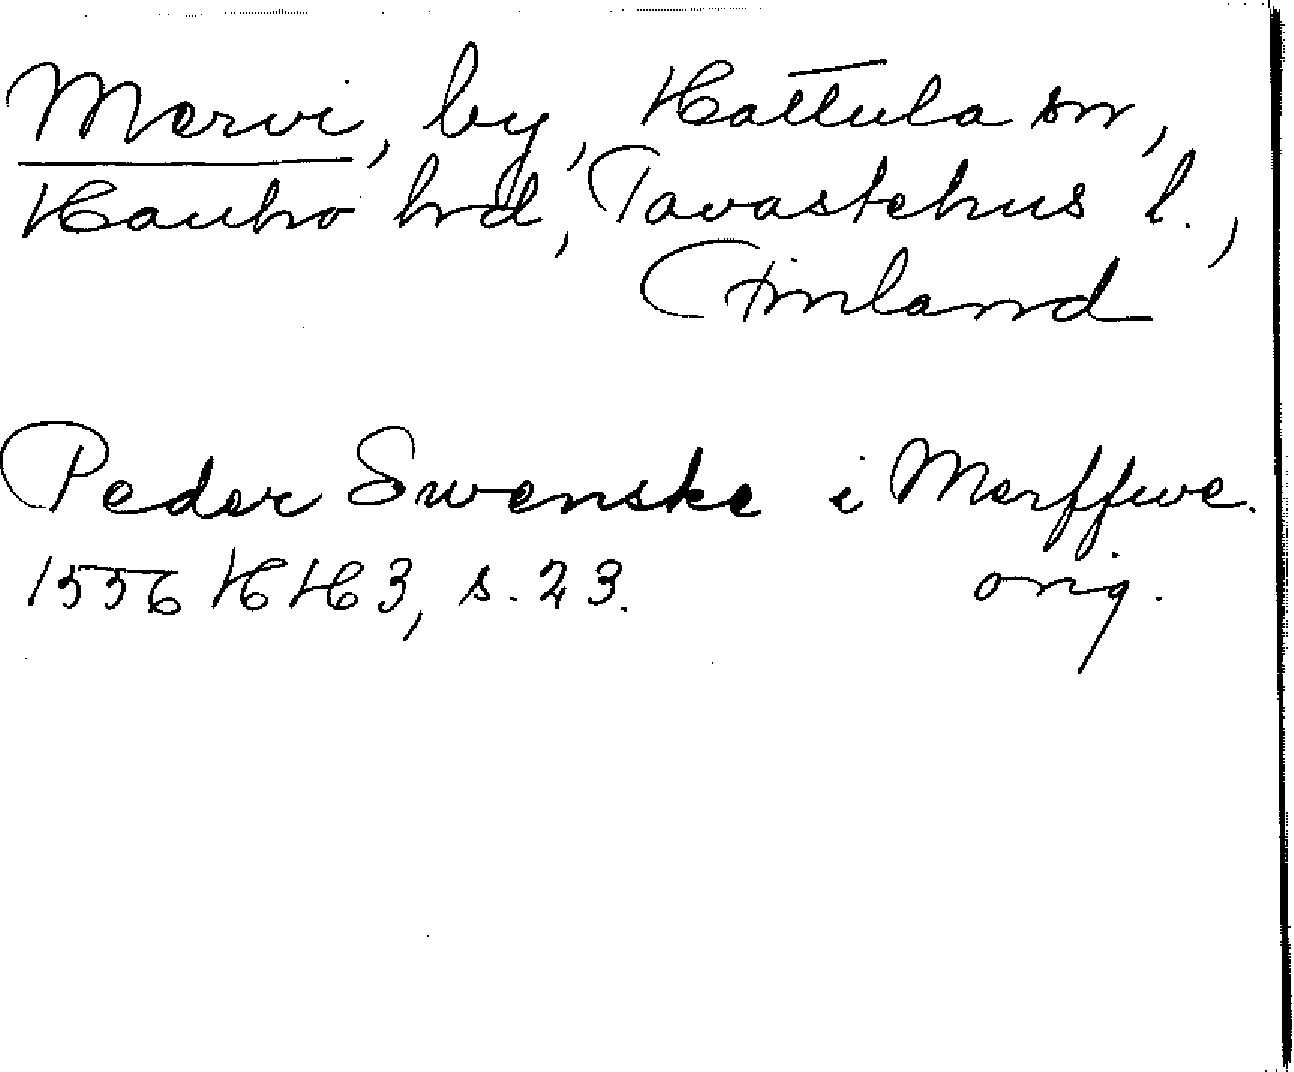 Mervi, by, Hattula sn,
Hauho hrd, Tavastehus l.,
Finland
Peder Swenske i Merffwe.
1556 HH3, s. 23. orig.